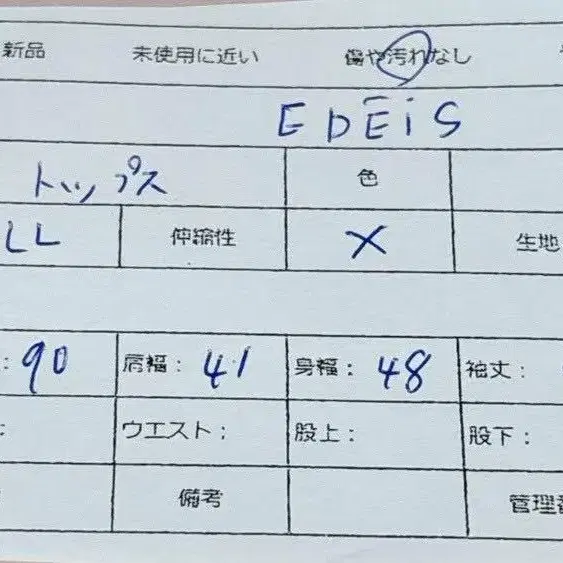 新品 未使用に近い 傷や汚れなし
EDEiS
トップス 色
LL 伸縮性 × 生地
: 90 肩幅: 41 身幅: 48 袖丈:
: ウエスト: 股上: 股下:
備考 管理